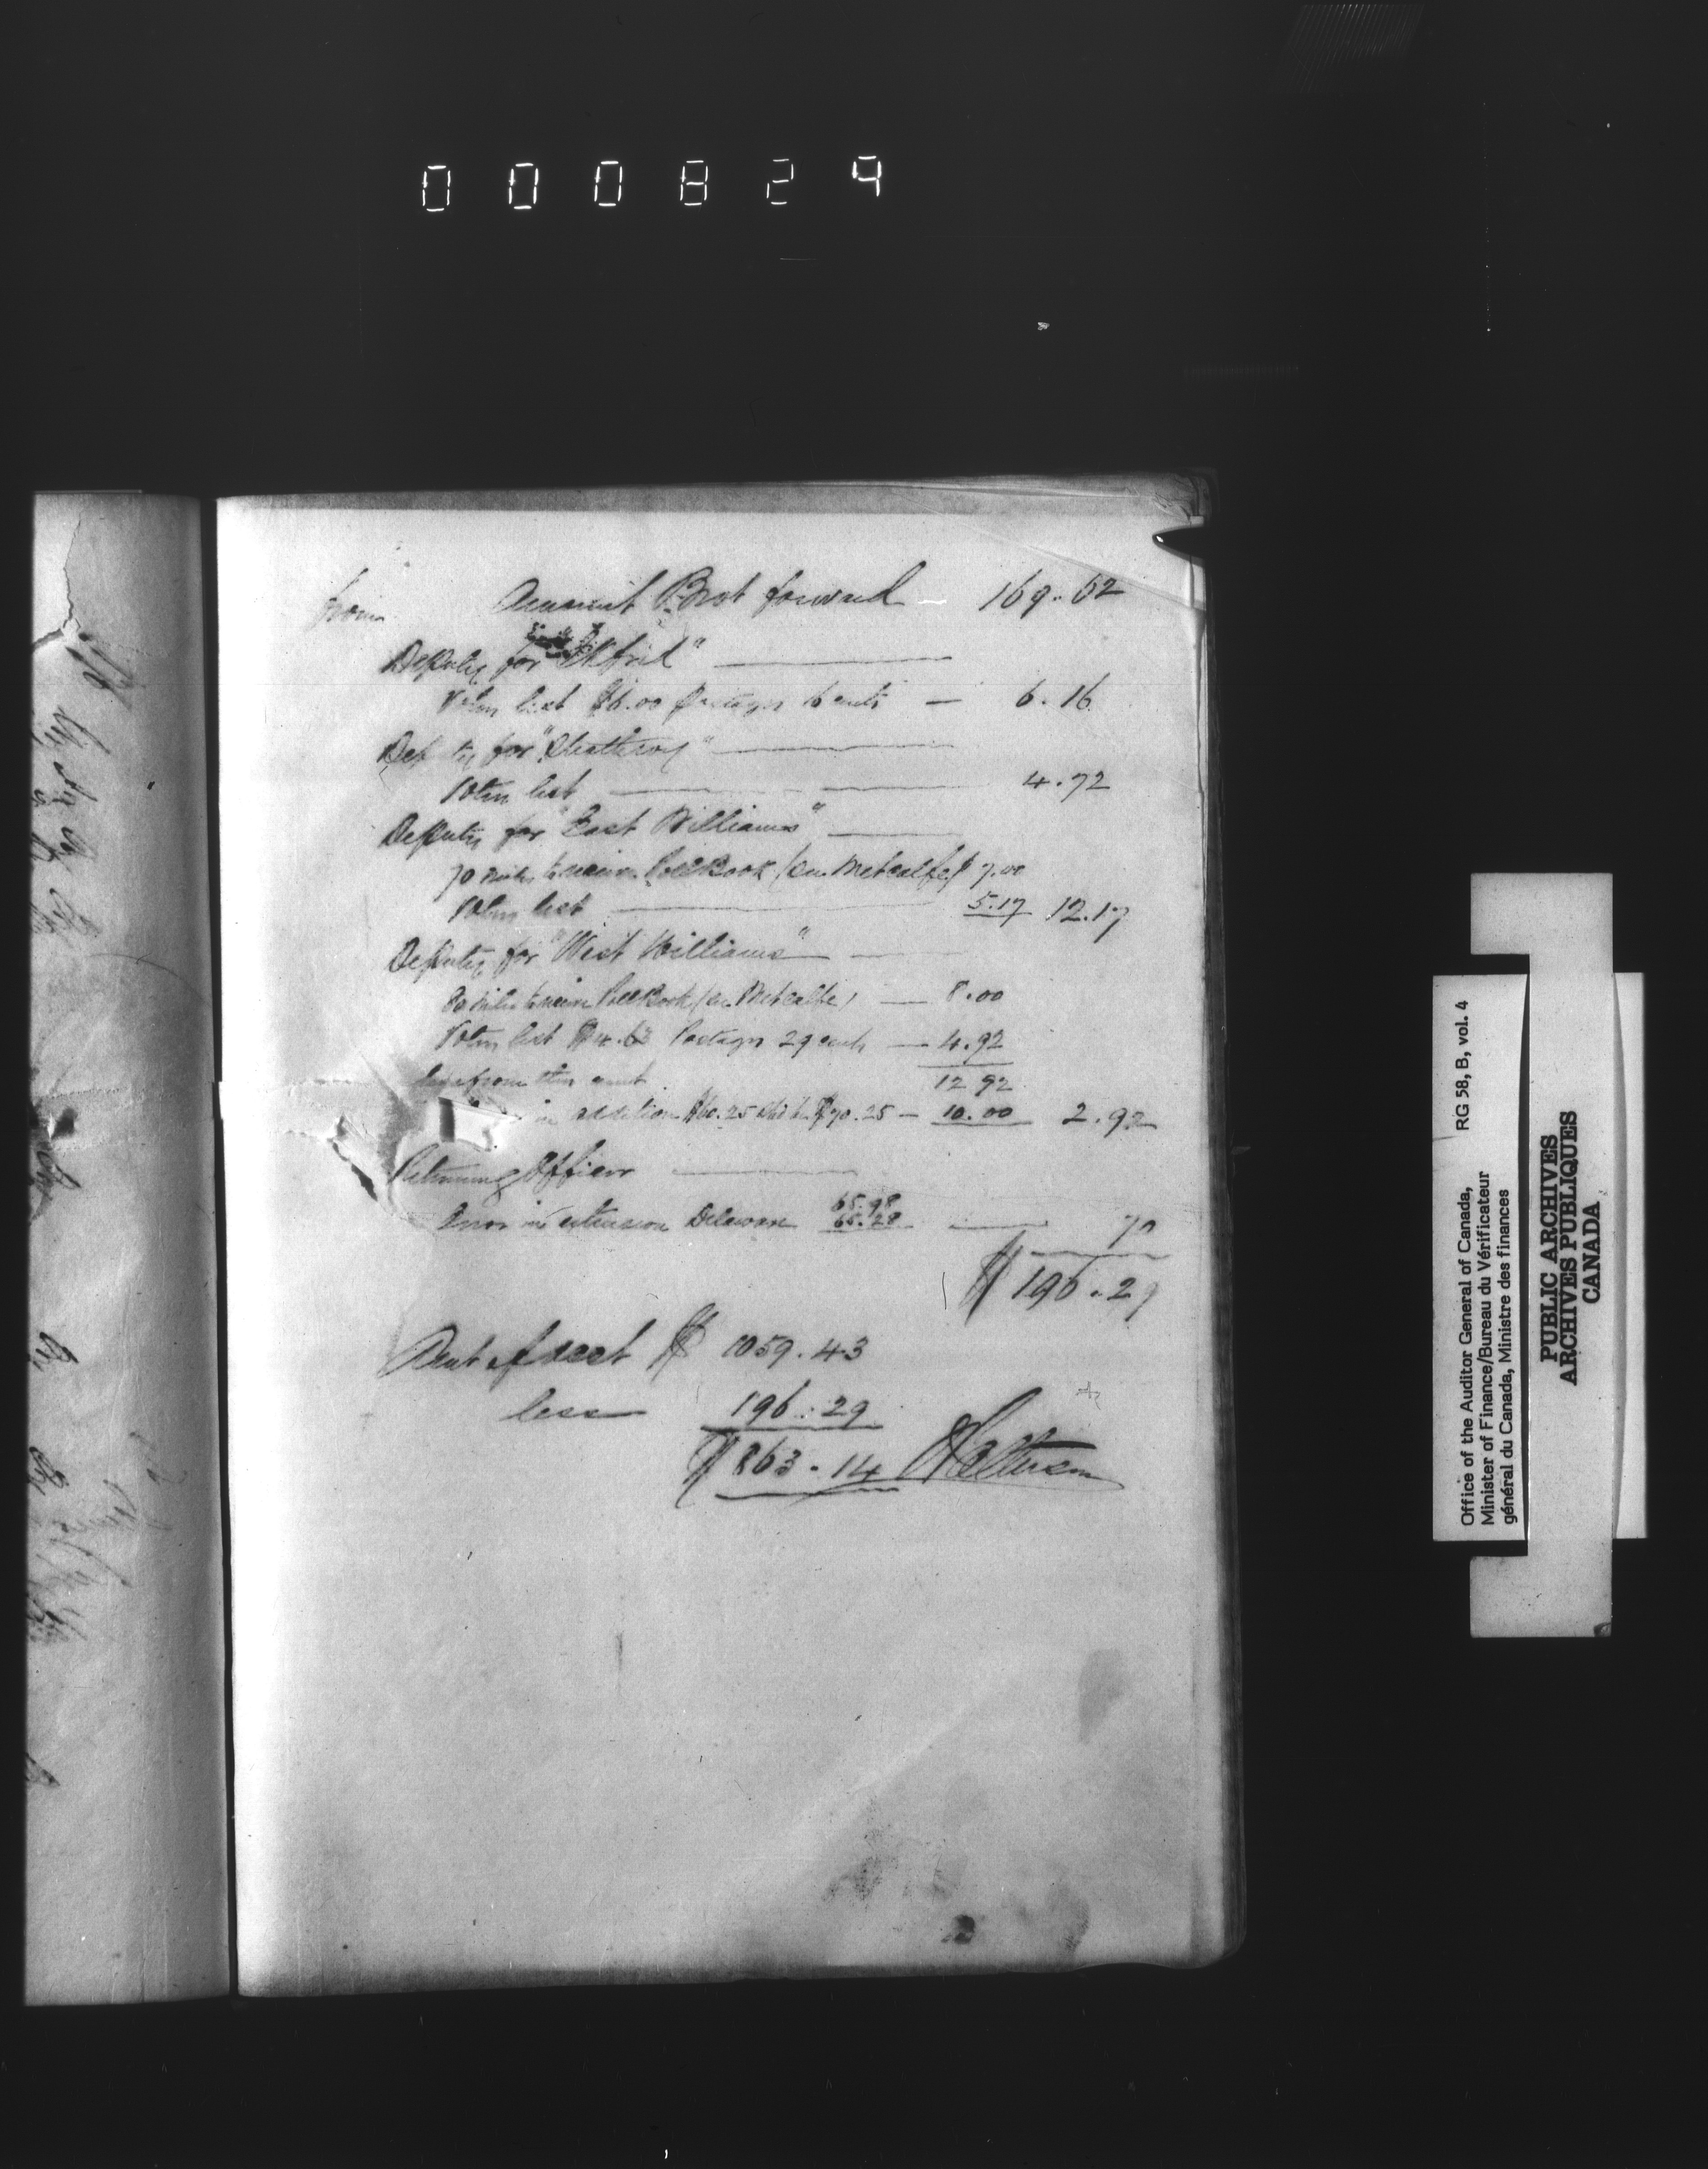 000824
from Amount Brot forward — 169.62
Deputy for "Ekfrid"
Voters list $6.00 Postages 16 cents — 6.16
Deputy for "Strathroy"
Voters list 4.72
Deputy for "East Williams"
70 miles to receive Poll Book (in Metcalfe) $7.00
Voters list 5.17 12.17
Deputy for "West Williams"
80 miles to receive Poll Book (in Metcalfe) — 8.00
Voters list $4.63 Postages 29 cents — 4.92
from this amt 12 92
in addition $60.25 shd be $70.25 — 10.00 2.92
Returning Officer
Error in extension Delaware 65.98
65.28 70
$196.29
Amt of acct $1059.43
less 196.29
$863.14
Office of the Auditor General of Canada, RG 58, B, vol. 4
Minister of Finance/Bureau du Vérificateur
général du Canada, Ministre des finances
PUBLIC ARCHIVES
ARCHIVES PUBLIQUES
CANADA